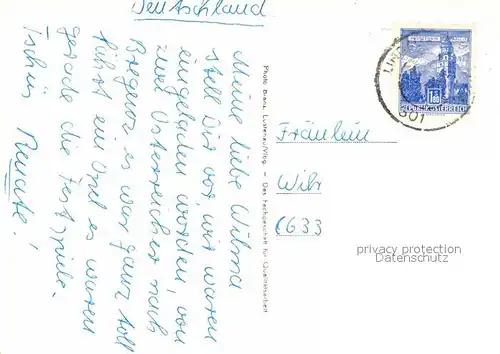 Deutschland
Meine liebe Wilma
stell Dir vor, wir waren
eingeladen worden, von
zwei Österreicher nach
Bregenz es war ganz toll
führt ein Opel es waren
gerade die Festspiele.
Tschüs Renate!
Photo Branz, Lustenau/Vlbg. – Das Fachgeschäft für Qualitätsarbeit
REPUBLIK ÖSTERREICH
601
Fräulein
Wilr
6633
privacy protection
Datenschutz